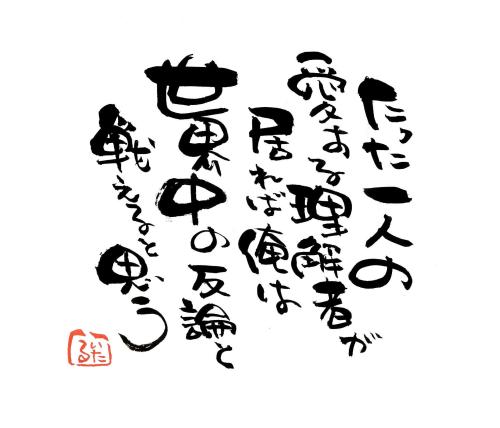 たった一人の
愛ある理解者が
居れば俺は
世界中の反論と
戦えると思う
いたる